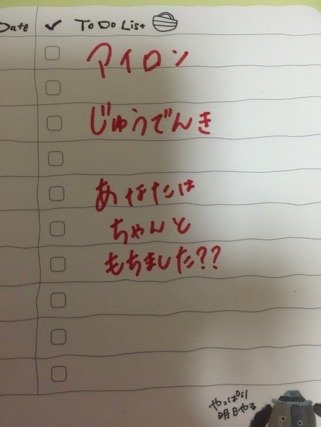 Date ✓ To Do List
アイロン
じゅうでんき
あなたは
ちゃんと
もちました??
やっぱり
明日やる